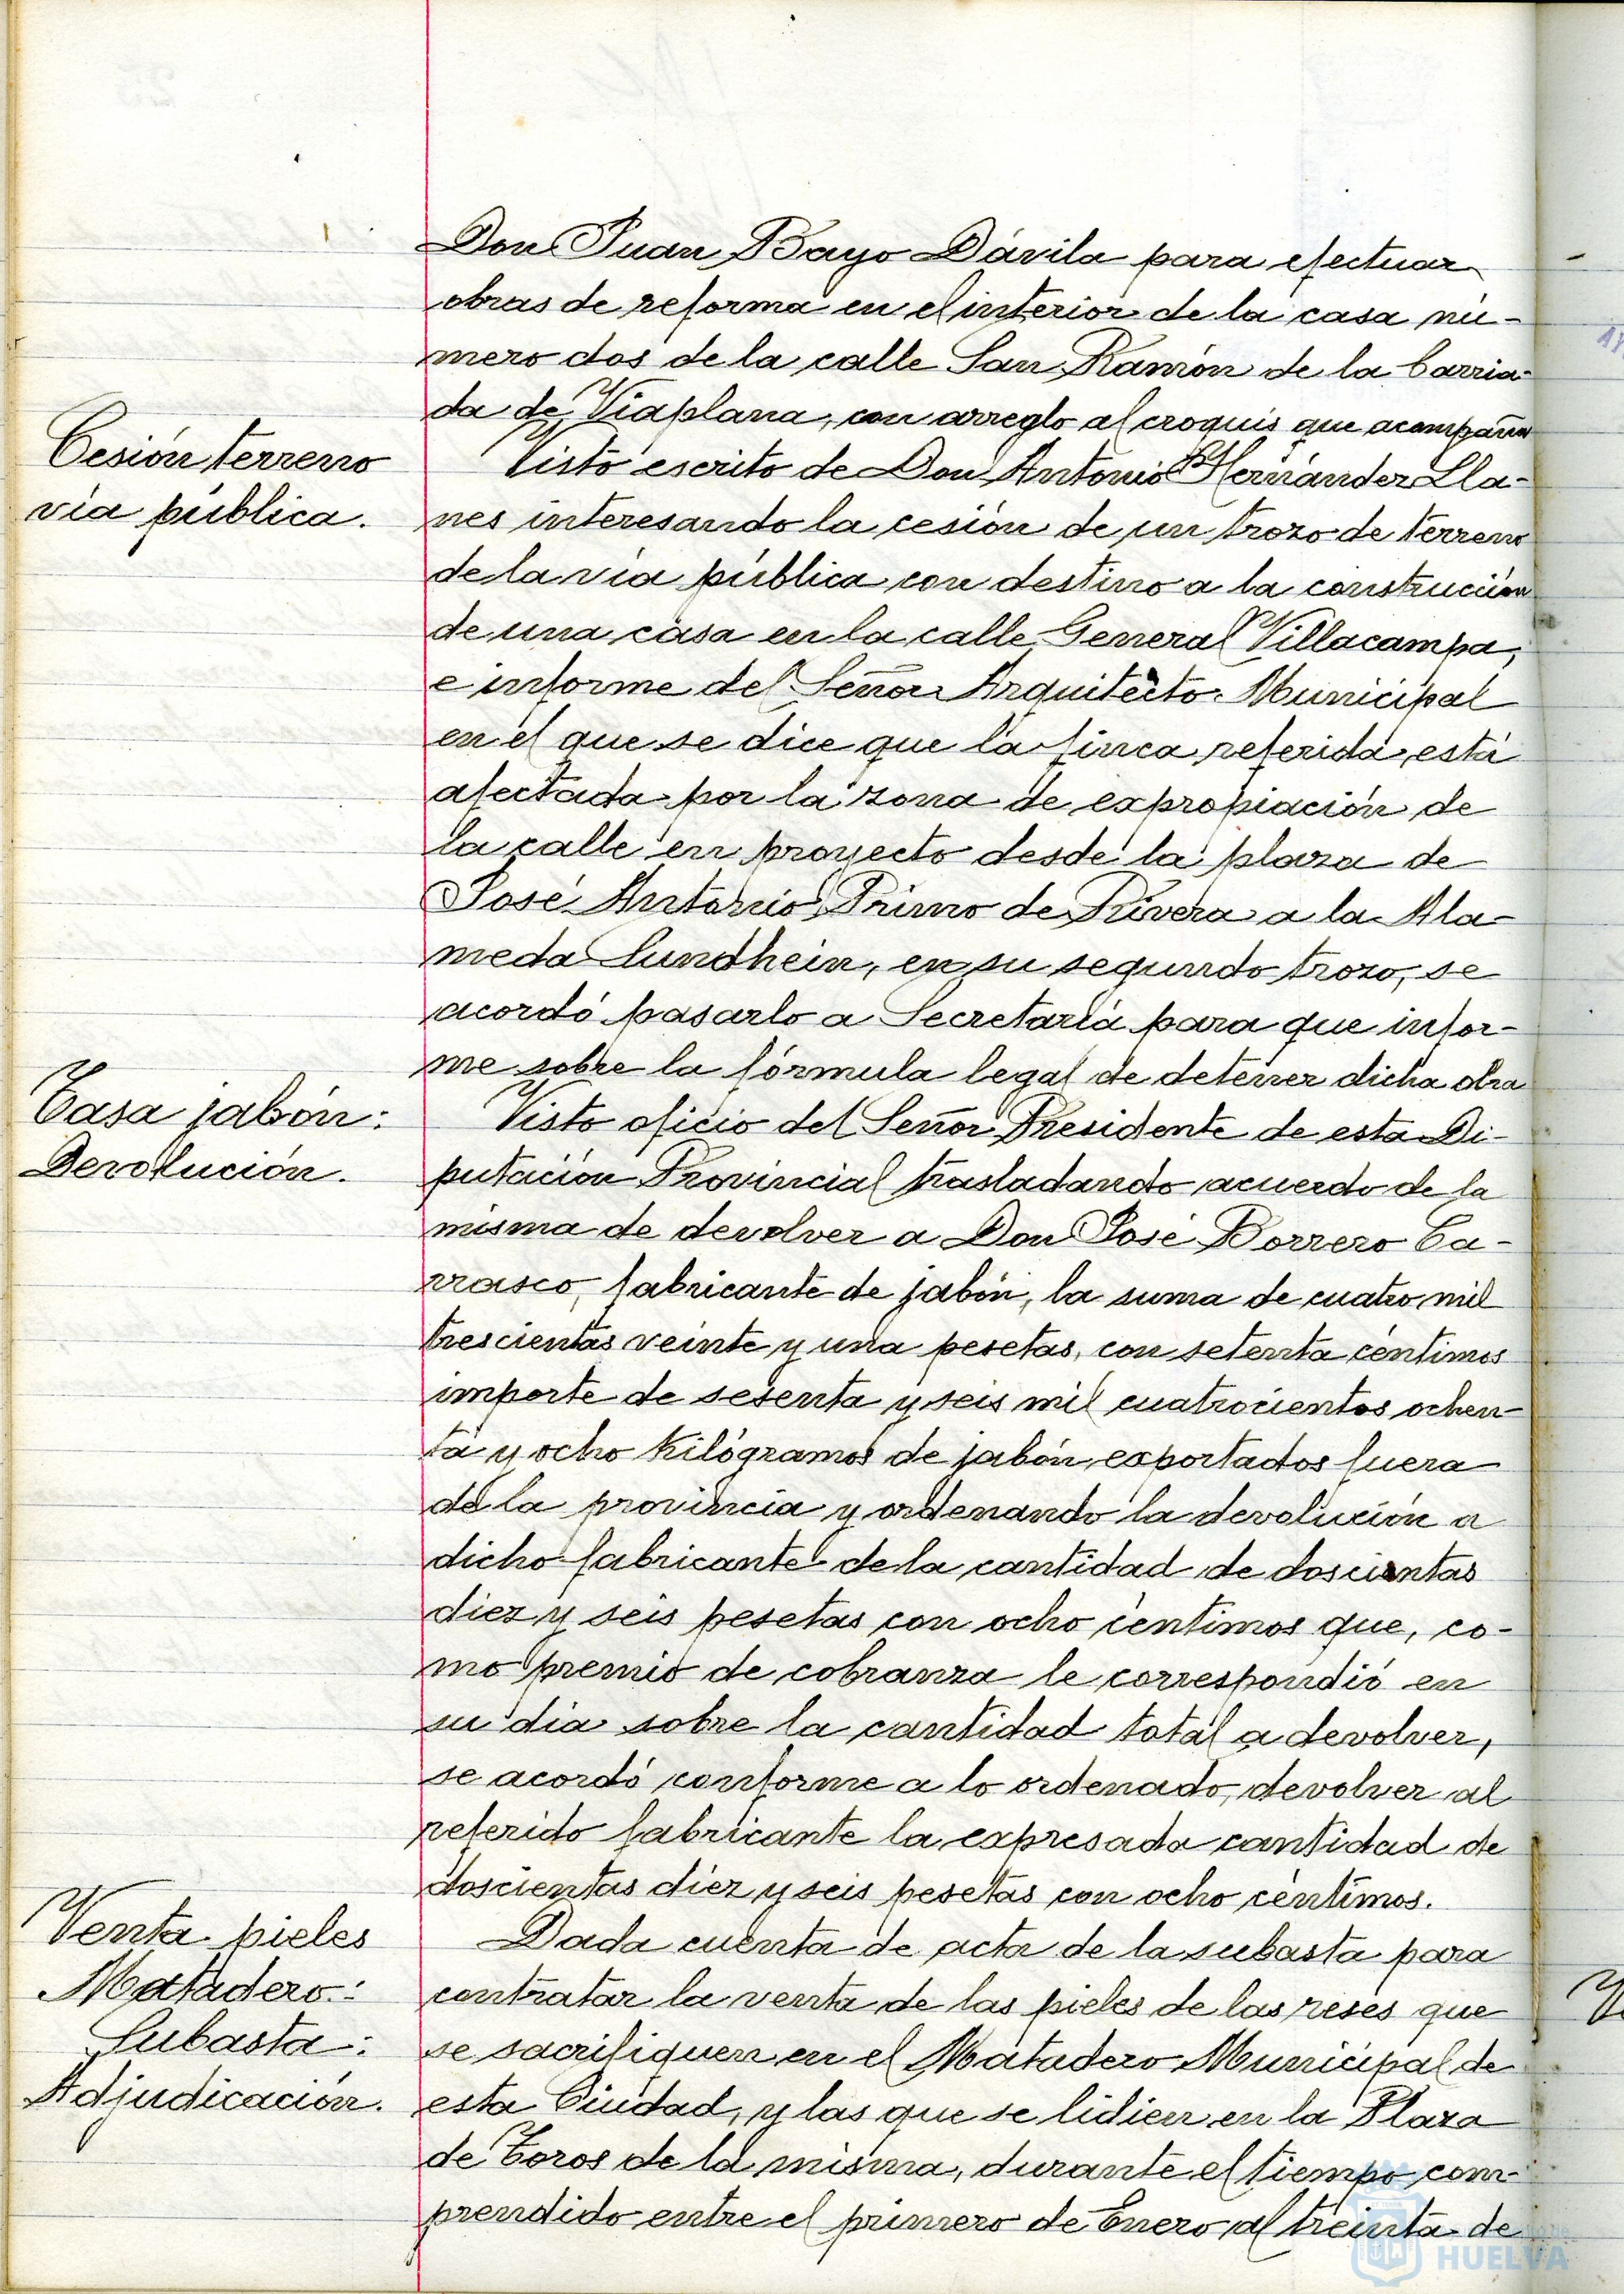 Don Juan Bayo Dávila para efectuar
obras de reforma en el interior de la casa nú-
mero dos de la calle San Ramón de la barria-
da de Viaplana, con arreglo al croquis que acompaña
Cesión terreno
vía pública.
Visto escrito de Don Antonio Hernández Lla-
nes interesando la cesión de un trozo de terreno
de la vía pública con destino a la construción
de una casa en la calle General Villacampa,
e informe del Señor Arquitecto Municipal
en el que se dice que la finca referida está
afectada por la zona de expropiación de
la calle en proyecto desde la plaza de
José Antonio Primo de Rivera a la Ala-
meda Sundhein, en su segundo trozo, se
acordó pasarlo a Secretaría para que infor-
me sobre la fórmula legal de detener dicha obra
Tasa jabón:
Devolución.
Visto oficio del Señor Presidente de esta Di-
putación Provincial trasladando acuerdo de la
misma de devolver a Don José Borrero Ca-
rrasco, fabricante de jabón, la suma de cuatro mil
trescientas veinte y una pesetas, con setenta céntimos
importe de sesenta y seis mil cuatrocientos ochen-
ta y ocho kilógramos de jabón exportados fuera
de la provincia y ordenando la devolución a
dicho fabricante de la cantidad de doscientas
diez y seis pesetas con ocho céntimos que, co-
mo premio de cobranza le correspondió en
su día sobre la cantidad total a devolver,
se acordó conforme a lo ordenado, devolver al
referido fabricante la expresada cantidad de
doscientas diez y seis pesetas con ocho céntimos.
Venta pieles
Matadero:
Subasta:
Adjudicación.
Dada cuenta de acta de la subasta para
contratar la venta de las pieles de las reses que
se sacrifiquen en el Matadero Municipal de
esta Ciudad, y las que se lidien en la Plaza
de Toros de la misma, durante el tiempo com-
prendido entre el primero de Enero al treinta de
HUELVA